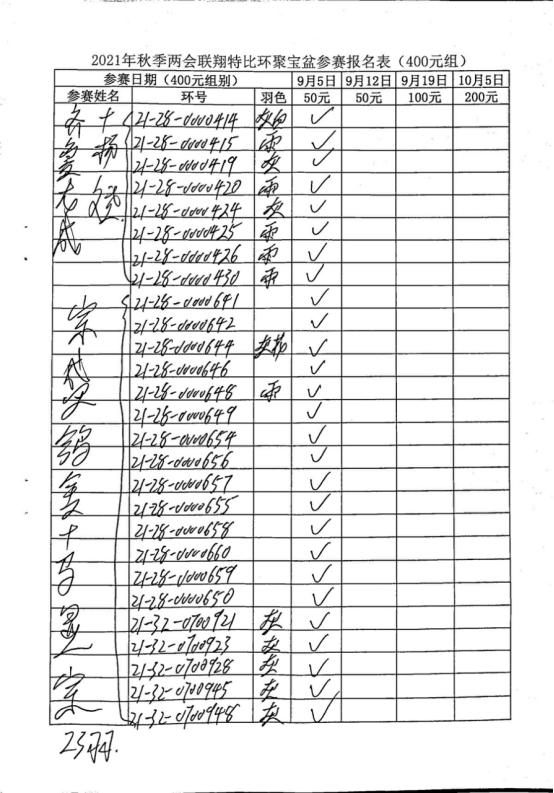 2021年秋季两会联翔特比环聚宝盆参赛报名表（400元组）
参赛日期（400元组别） 9月5日 9月12日 9月19日 10月5日
参赛姓名 环号 羽色 50元 50元 100元 200元
21-28-0000414 灰白 ✓
21-28-0000415 雨 ✓
21-28-0000419 灰 ✓
21-28-0000420 雨 ✓
21-28-0000424 灰 ✓
21-28-0000425 雨 ✓
21-28-0000426 雨 ✓
21-28-0000430 雨 ✓
21-28-0000641 ✓
21-28-0000642 ✓
21-28-0000644 ✓
21-28-0000646 ✓
21-28-0000648 雨 ✓
21-28-0000649 ✓
21-28-0000654 ✓
21-28-0000656 ✓
21-28-0000657 ✓
21-28-0000655 ✓
21-28-0000658 ✓
21-28-0000660 ✓
21-28-0000659 ✓
21-28-0000650 ✓
21-32-0700921 灰 ✓
21-32-0700923 灰 ✓
21-32-0700928 灰 ✓
21-32-0700945 灰 ✓
21-32-0700948 灰 ✓